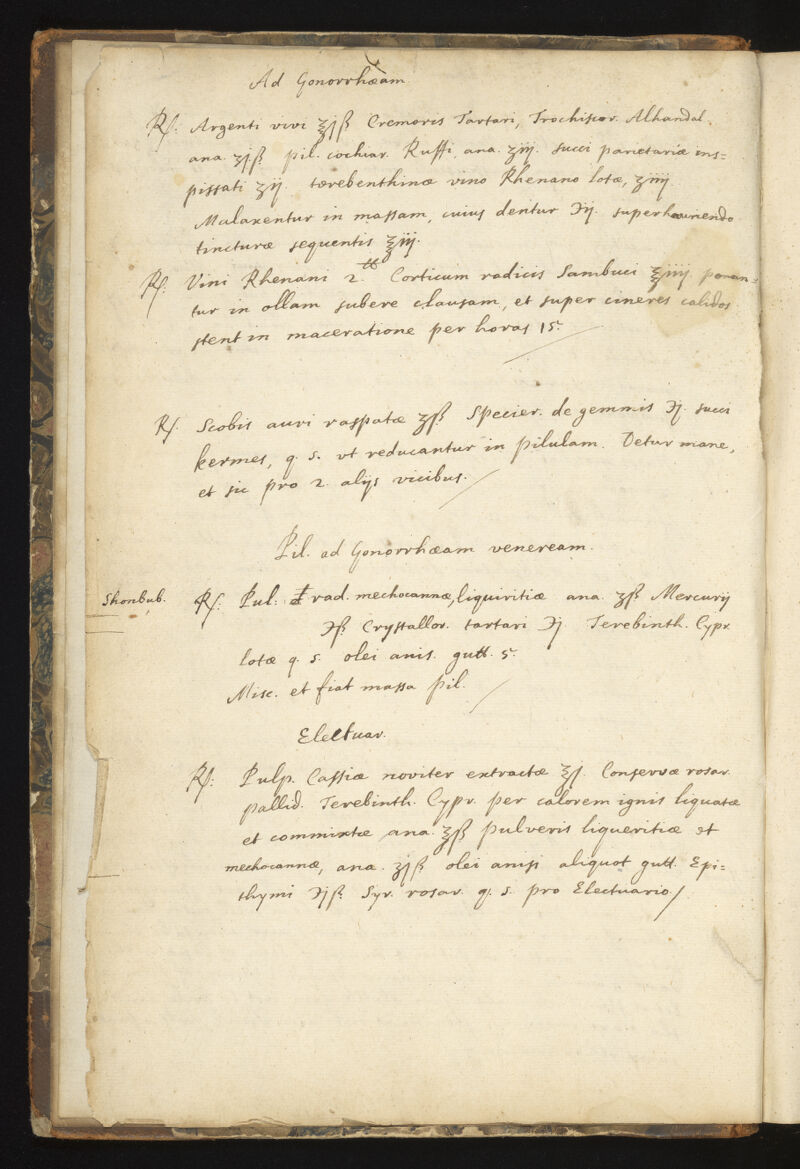 Ad Gonorrhæam
℞: Argenti vivi ℥jß Cremoris Tartari, Trochiscor. Alhandal.
ana. ʒjß pil. cochiar. Ruffi, ana. ʒiij. succi parietariæ ins=
pissati ʒij. tærebenthinæ vino Rhenano lotæ, ʒiiij.
Malaxentur in massam, cuius dentur ℈ij. superhauriendo
tincturæ sequentis ℥iij.
℞. Vini Rhenani 2.℔ Corticum radicis Sambuci ℥iiij ponan=
tur in ollam subere clausam, et super cineres calidos
stent in maceratione per horas 15.
℞. Scobis auri raspatæ ʒß Specier. de gemmis ℈j. succi
kermes, q. s. vt reducantur in pilulam. Detur mane,
et sic pro 2. alijs vicibus.
Pil. ad Gonorrhæam veneream.
Shonbub.
℞: Pul: rad. mechocannæ, liquiritiæ ana. ʒß Mercurij
℈ß Crystallor. tartari ℈j Terebinth. Cypr.
lotæ q. s. olei anis. gutt. 5.
Misc. et fiat massa pil.
Electuar.
℞: Pulp. Cassiæ noviter extractæ ℥j. Conservæ rosar.
pallid. Terebinth. Cypr. per calorem ignis liquatæ
et commixtæ ana. ℥ß pulveris liqueritiæ et
mechocannæ, ana. ʒjß olei anisi aliquot gutt. Epi=
thymi ℈jß. Syr. rosar. q. s. pro Electuario